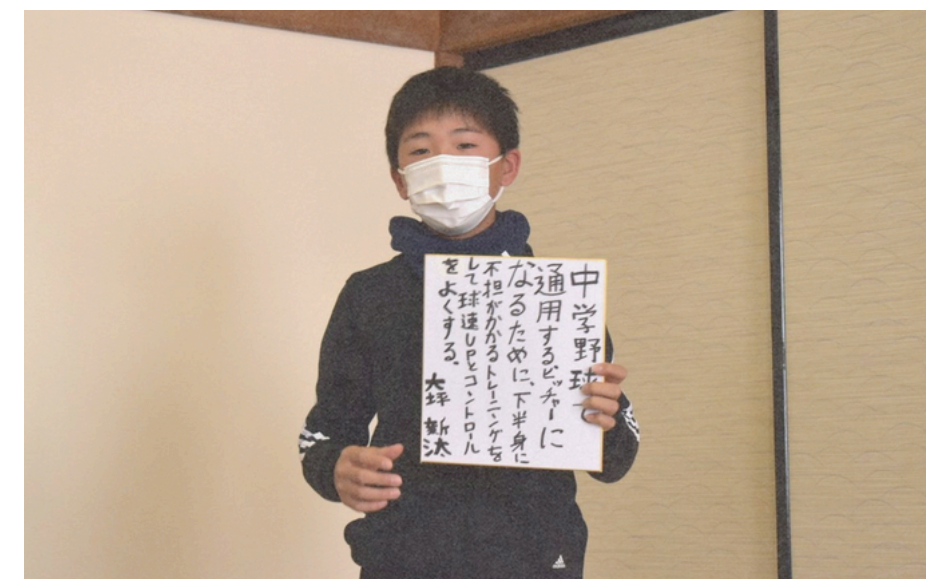 中学野球で
通用するピッチャーに
なるために、下半身に
不担がかかるトレーニングを
して球速UPとコントロール
をよくする。
大坪 新汰
adidas